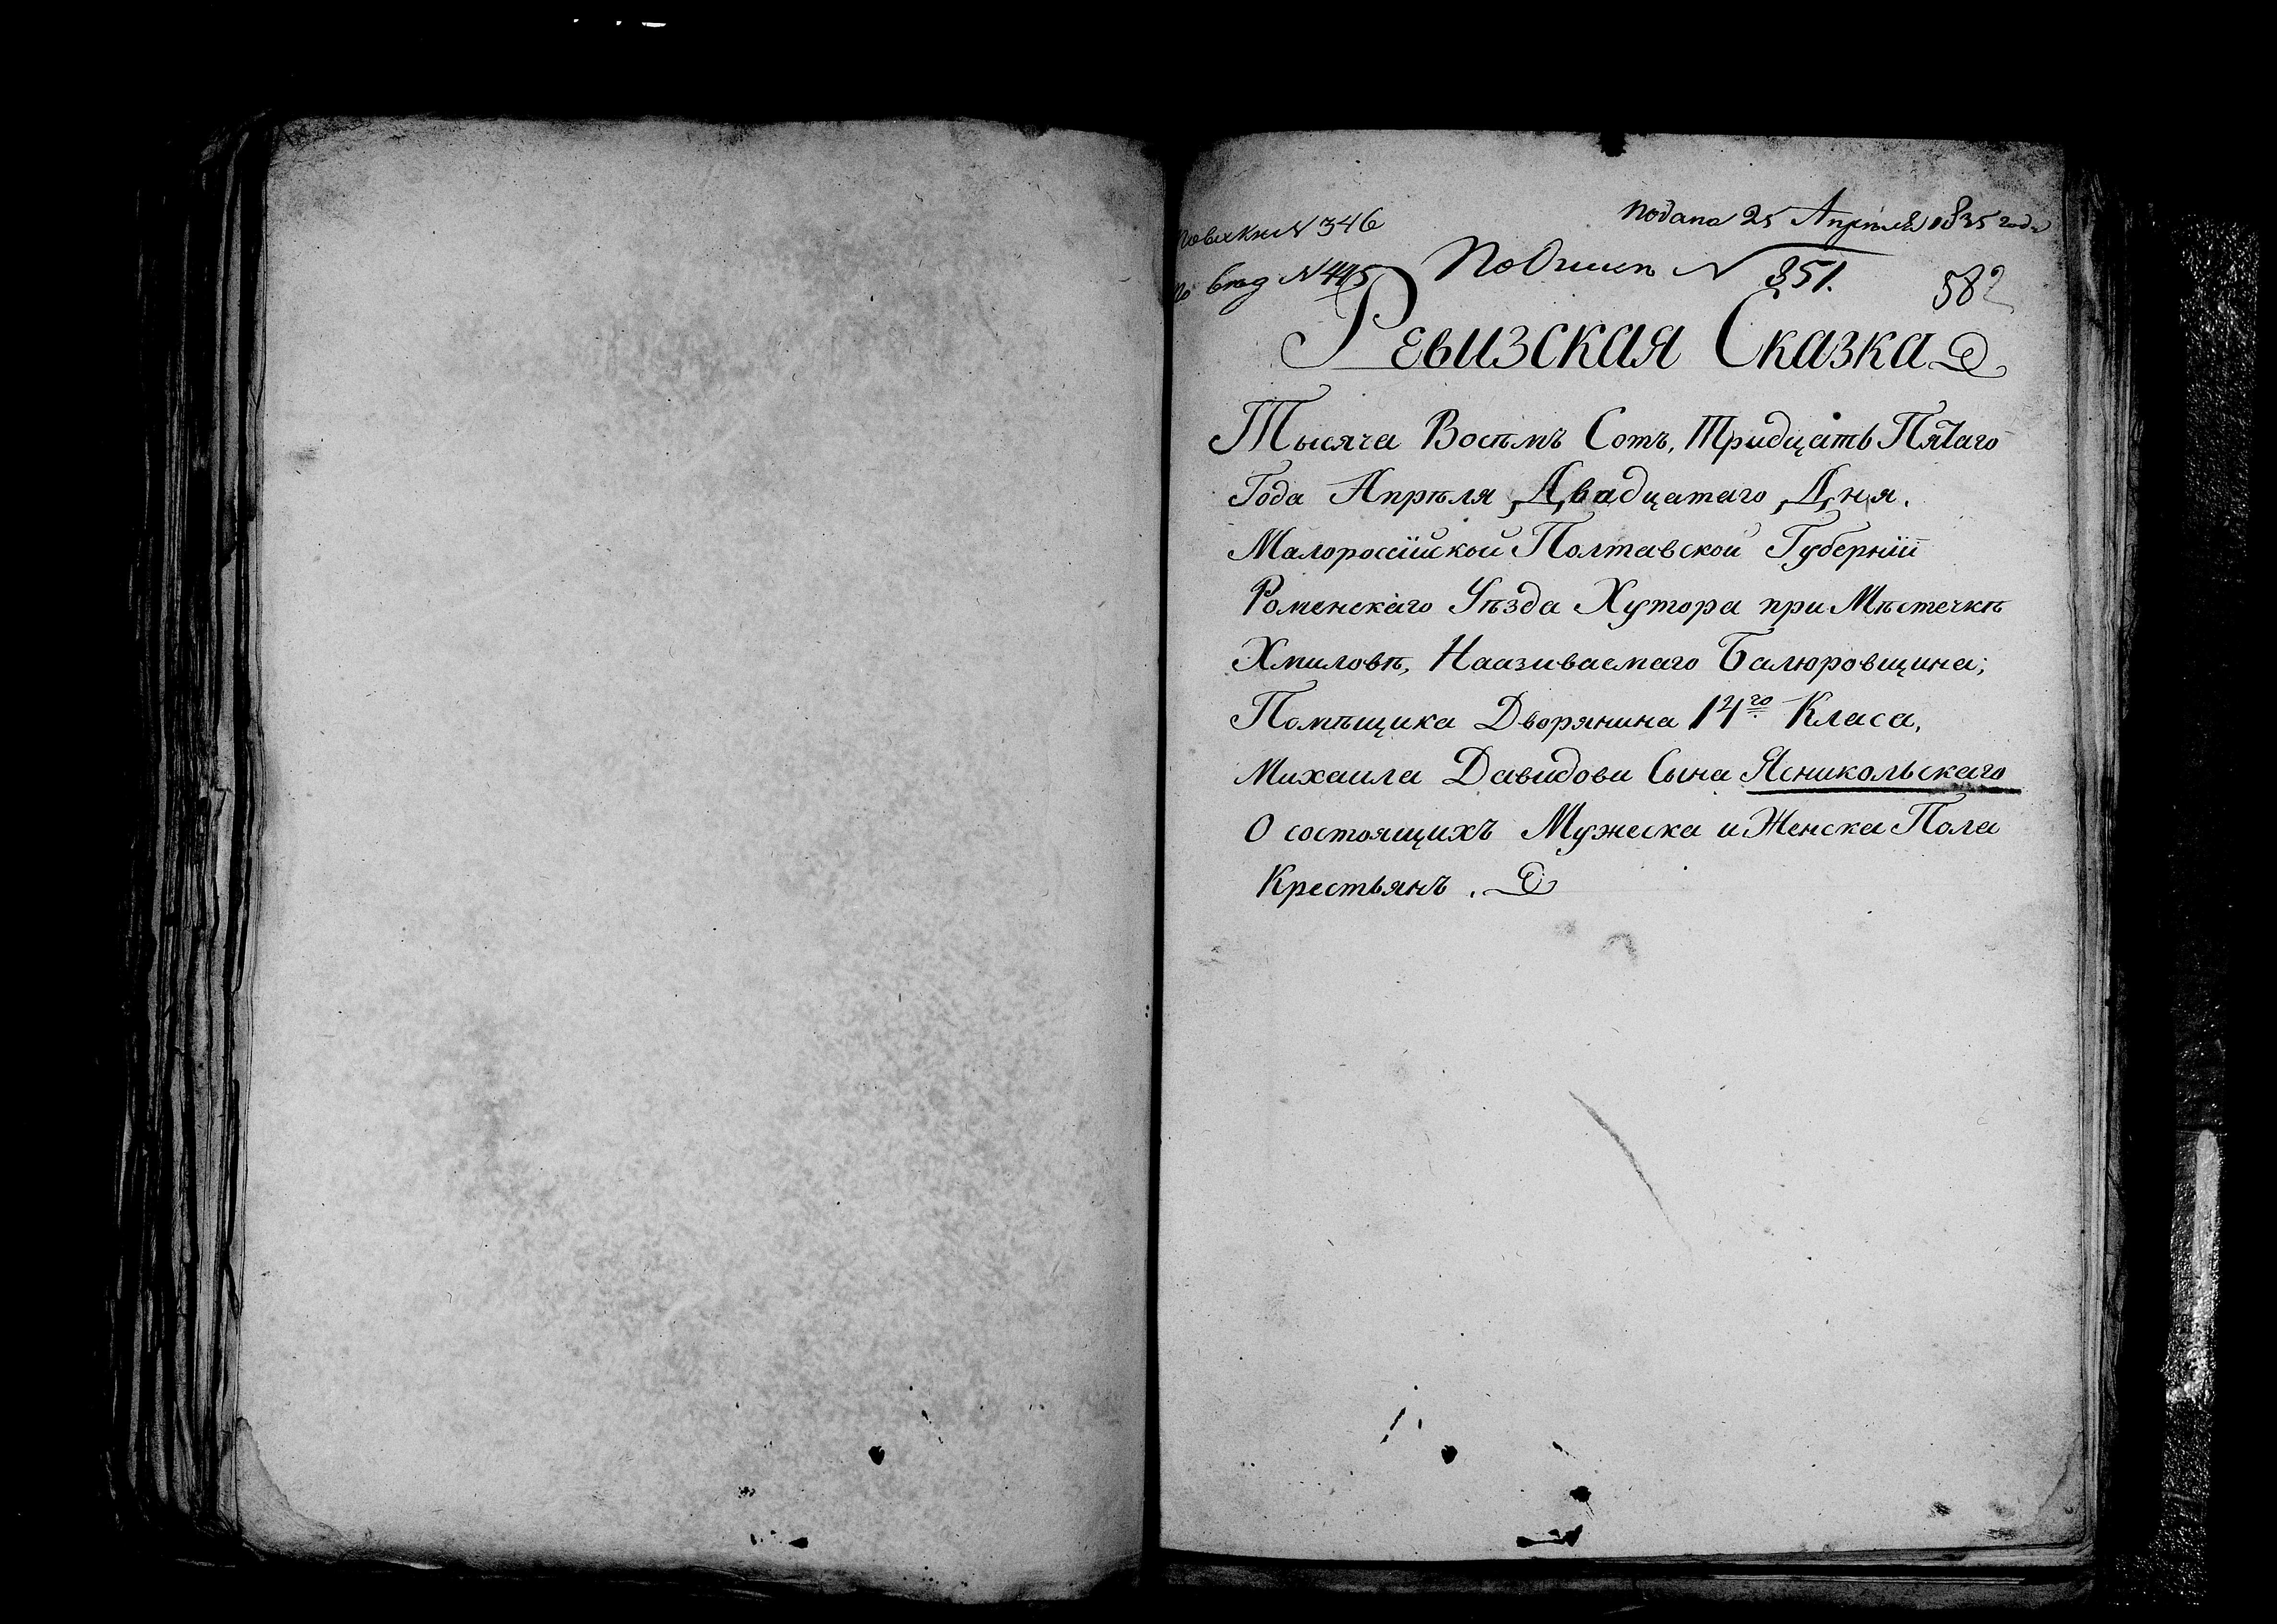 подана 25 Апреля 1835 года
N 346
По Описи N 351.
N 445
582
Ревизская Сказка
Тысяча Восѣмъ Сотъ, Тридцать Пятаго
Года Апрѣля Двадцатаго Дня.
Малоросiйской Полтавской Губернiи
Роменскаго Уѣзда Хутора при Мѣстечкѣ
Хмиловѣ, Наазиваемаго Балюровщина;
Помѣщика Дворянина 14го Класа,
Михаила Давидова Сына Ясникольскаго
О состоящихъ Мужеска и Женска Пола
Крестьянъ.